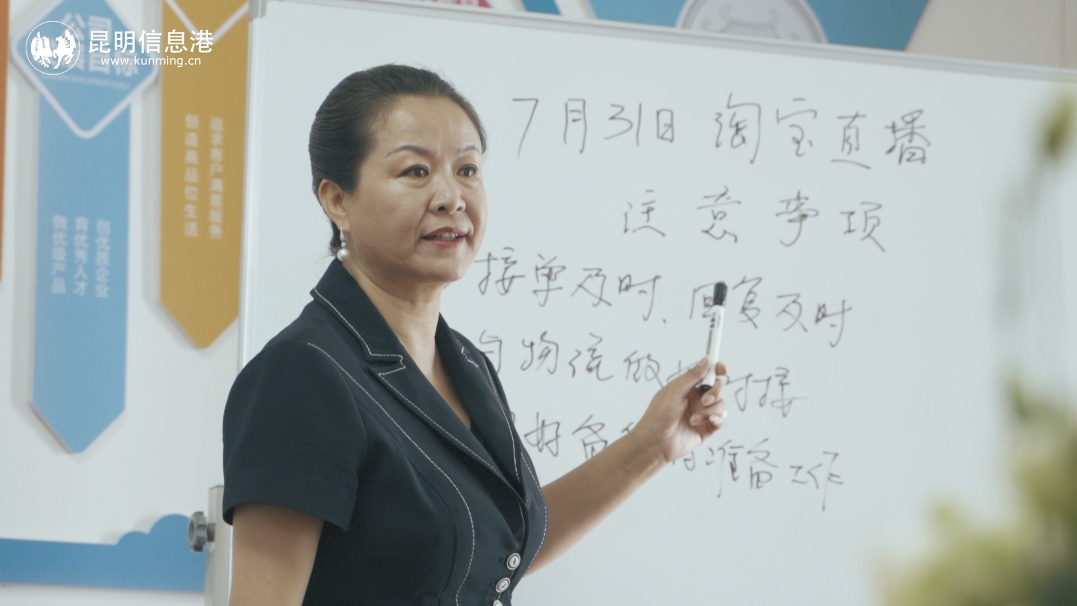 昆明信息港
www.kunming.cn
公司
目标
创优质企业
育优秀人才
创优级产品
追求客户满意服务
创造高品位生活
7月31日 淘宝直播
注意事项
接单及时、回复及时
与物流做好对接
好备货的准备工作